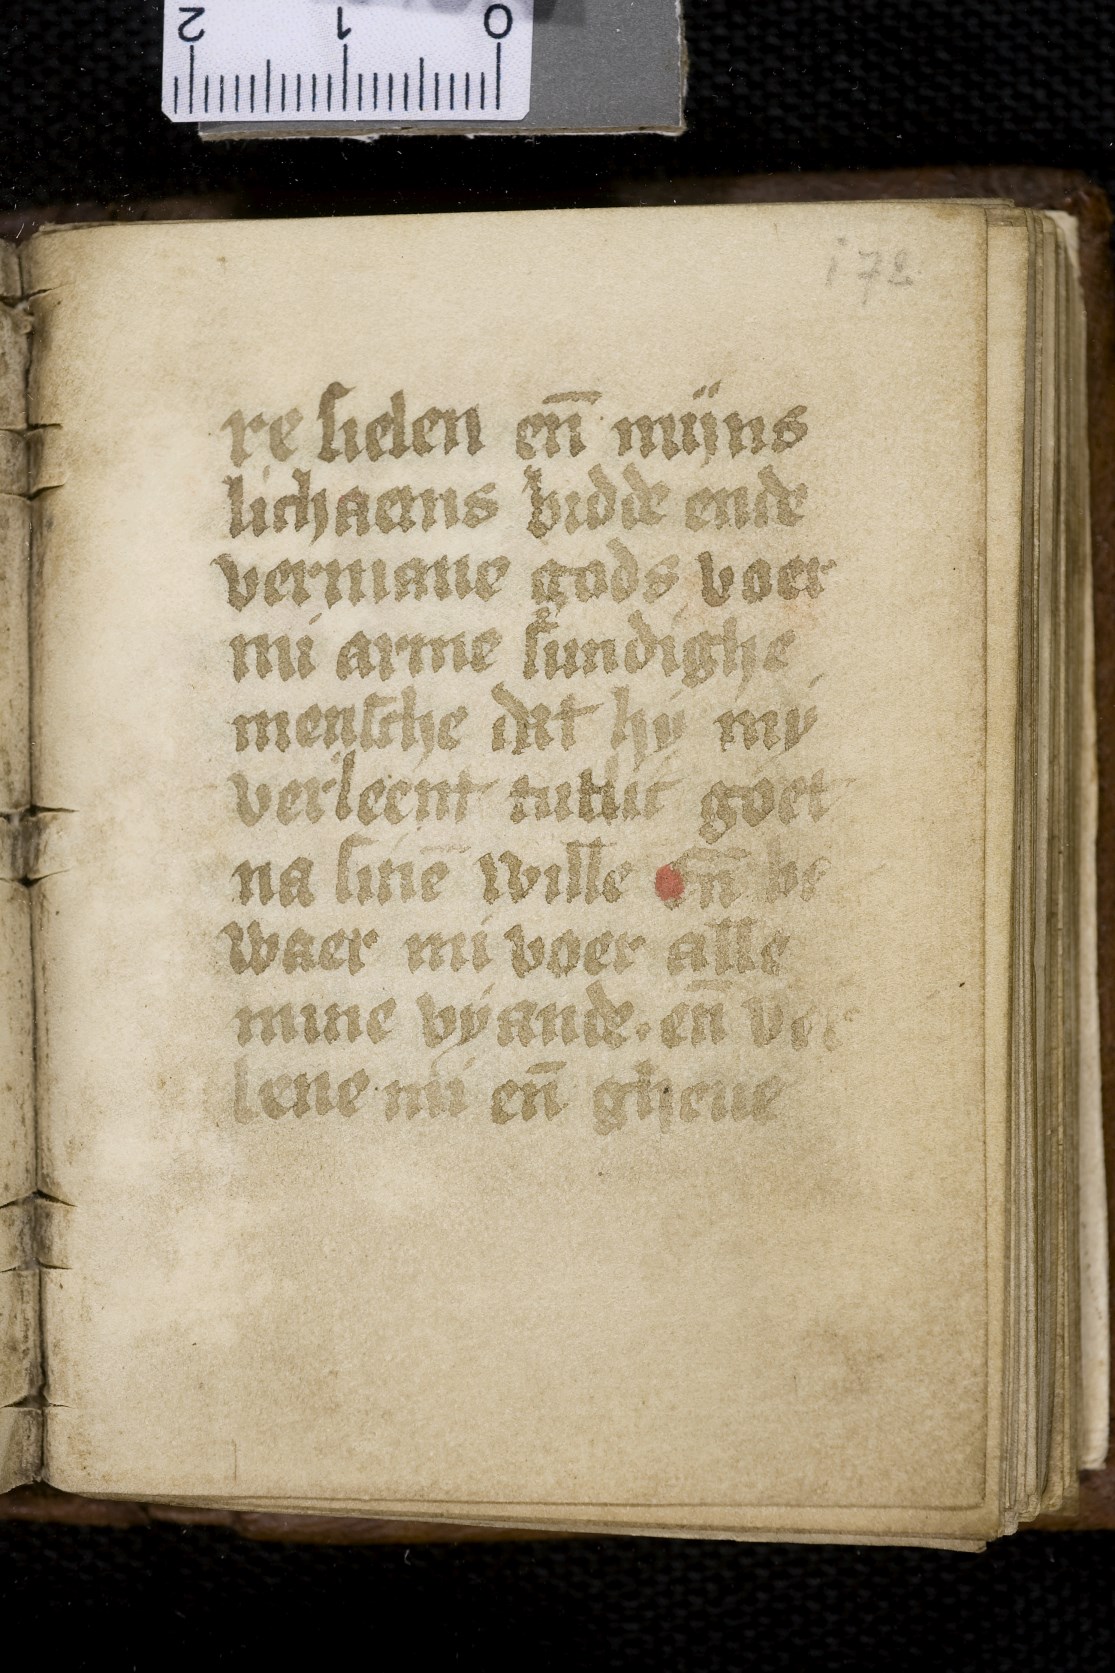 2 1 0
172
re sielen en̄ mijns
lichaems bidde ende
vermane gods voer
mi arme sundighe
mensche dat hy my
verleent tutlic goet
na sinē wille en̄ be
waer mi voer alle
mine vyande. en̄ ver
lene mi en̄ gheue